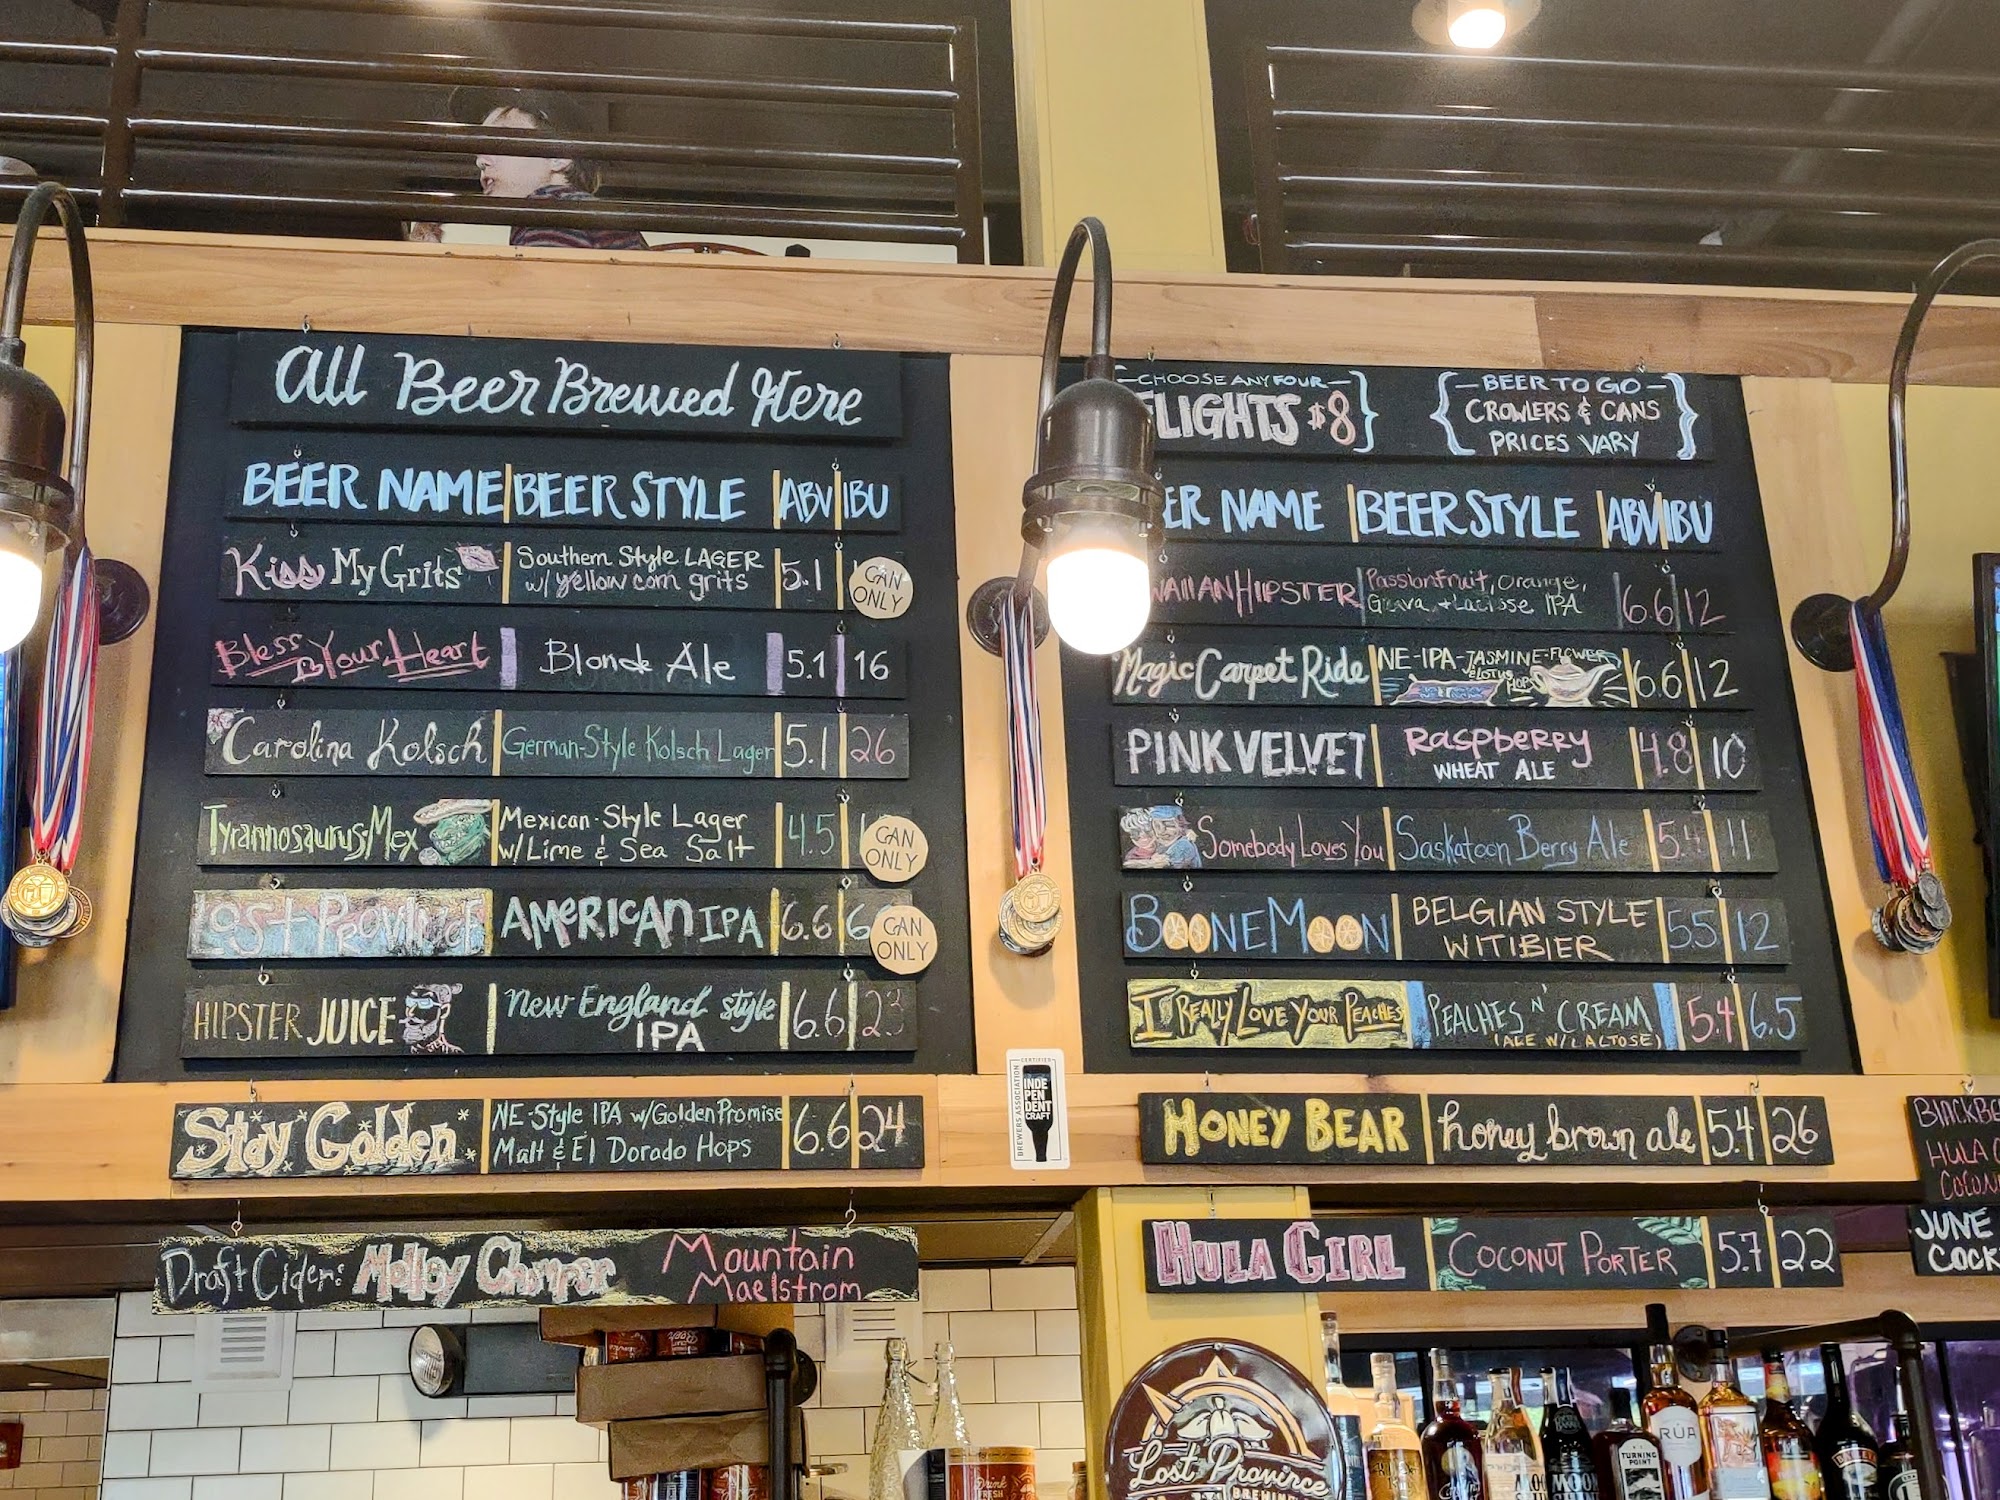 All Beer Brewed Here
BEER NAME BEER STYLE ABV IBU
Kiss My Grits Southern Style LAGER w/ yellow corn grits 5.1 CAN ONLY
Bless Your Heart Blonde Ale 5.1 16
Carolina Kolsch German-Style Kolsch Lager 5.1 26
Tyrannosaurus Mex Mexican-Style Lager w/ Lime & Sea Salt 4.5 CAN ONLY
LOST PROVINCE AMERICAN IPA 6.6 CAN ONLY
HIPSTER JUICE New England style IPA 6.6 23
Stay Golden NE-Style IPA w/Golden Promise Malt & El Dorado Hops 6.6 24
Draft Cider: Molley Chomper Mountain Maelstrom
CHOOSE ANY FOUR
FLIGHTS $8
BEER TO GO
CROWLERS & CANS
PRICES VARY
ER NAME BEER STYLE ABV IBU
WAIIAN HIPSTER Passionfruit, Orange, Guava, + Lactose IPA 6.6 12
Magic Carpet Ride NE-IPA-JASMINE-FLOWER & LOTUS HOPS 6.6 12
PINK VELVET RASPBERRY WHEAT ALE 4.8 10
Somebody Loves You Saskatoon Berry Ale 5.4 11
BOONE MOON BELGIAN STYLE WITIBIER 5.5 12
I REALLY LOVE YOUR PEACHES PEACHES N' CREAM (ALE W/LACTOSE) 5.4 6.5
HONEY BEAR honey brown ale 5.4 26
HULA GIRL COCONUT PORTER 5.7 22
CERTIFIED
INDEPENDENT CRAFT
BREWERS ASSOCIATION
HULA
JUNE
Lost Province
BREWING
Drink
FRESH
TURNING POINT
RÚA